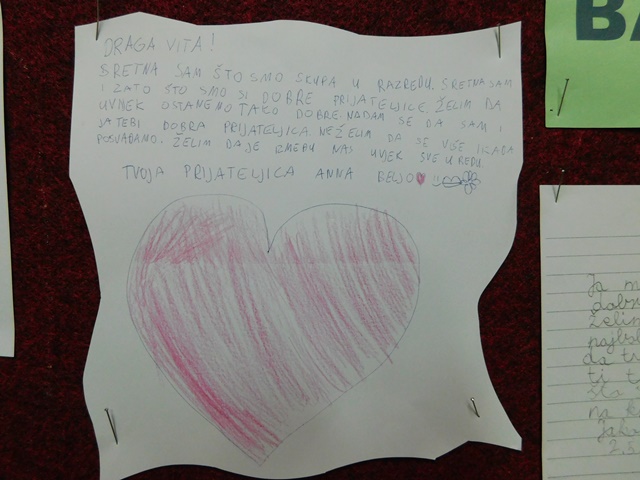 DRAGA VITA!
SRETNA SAM ŠTO SMO SKUPA U RAZREDU. SRETNA SAM
I ZATO ŠTO SMO SI DOBRE PRIJATELJICE. ŽELIM DA
UVIJEK OSTANEMO TAKO DOBRE. NADAM SE DA SAM I
JA TEBI DOBRA PRIJATELJICA. NEŽELIM DA SE VIŠE IKADA
POSVAĐAMO. ŽELIM DA JE IZMEĐU NAS UVJEK SVE U REDU.
TVOJA PRIJATELJICA ANNA BELJO
BA
Ja m
dobr
želim
najbol
da t
ti t
na k